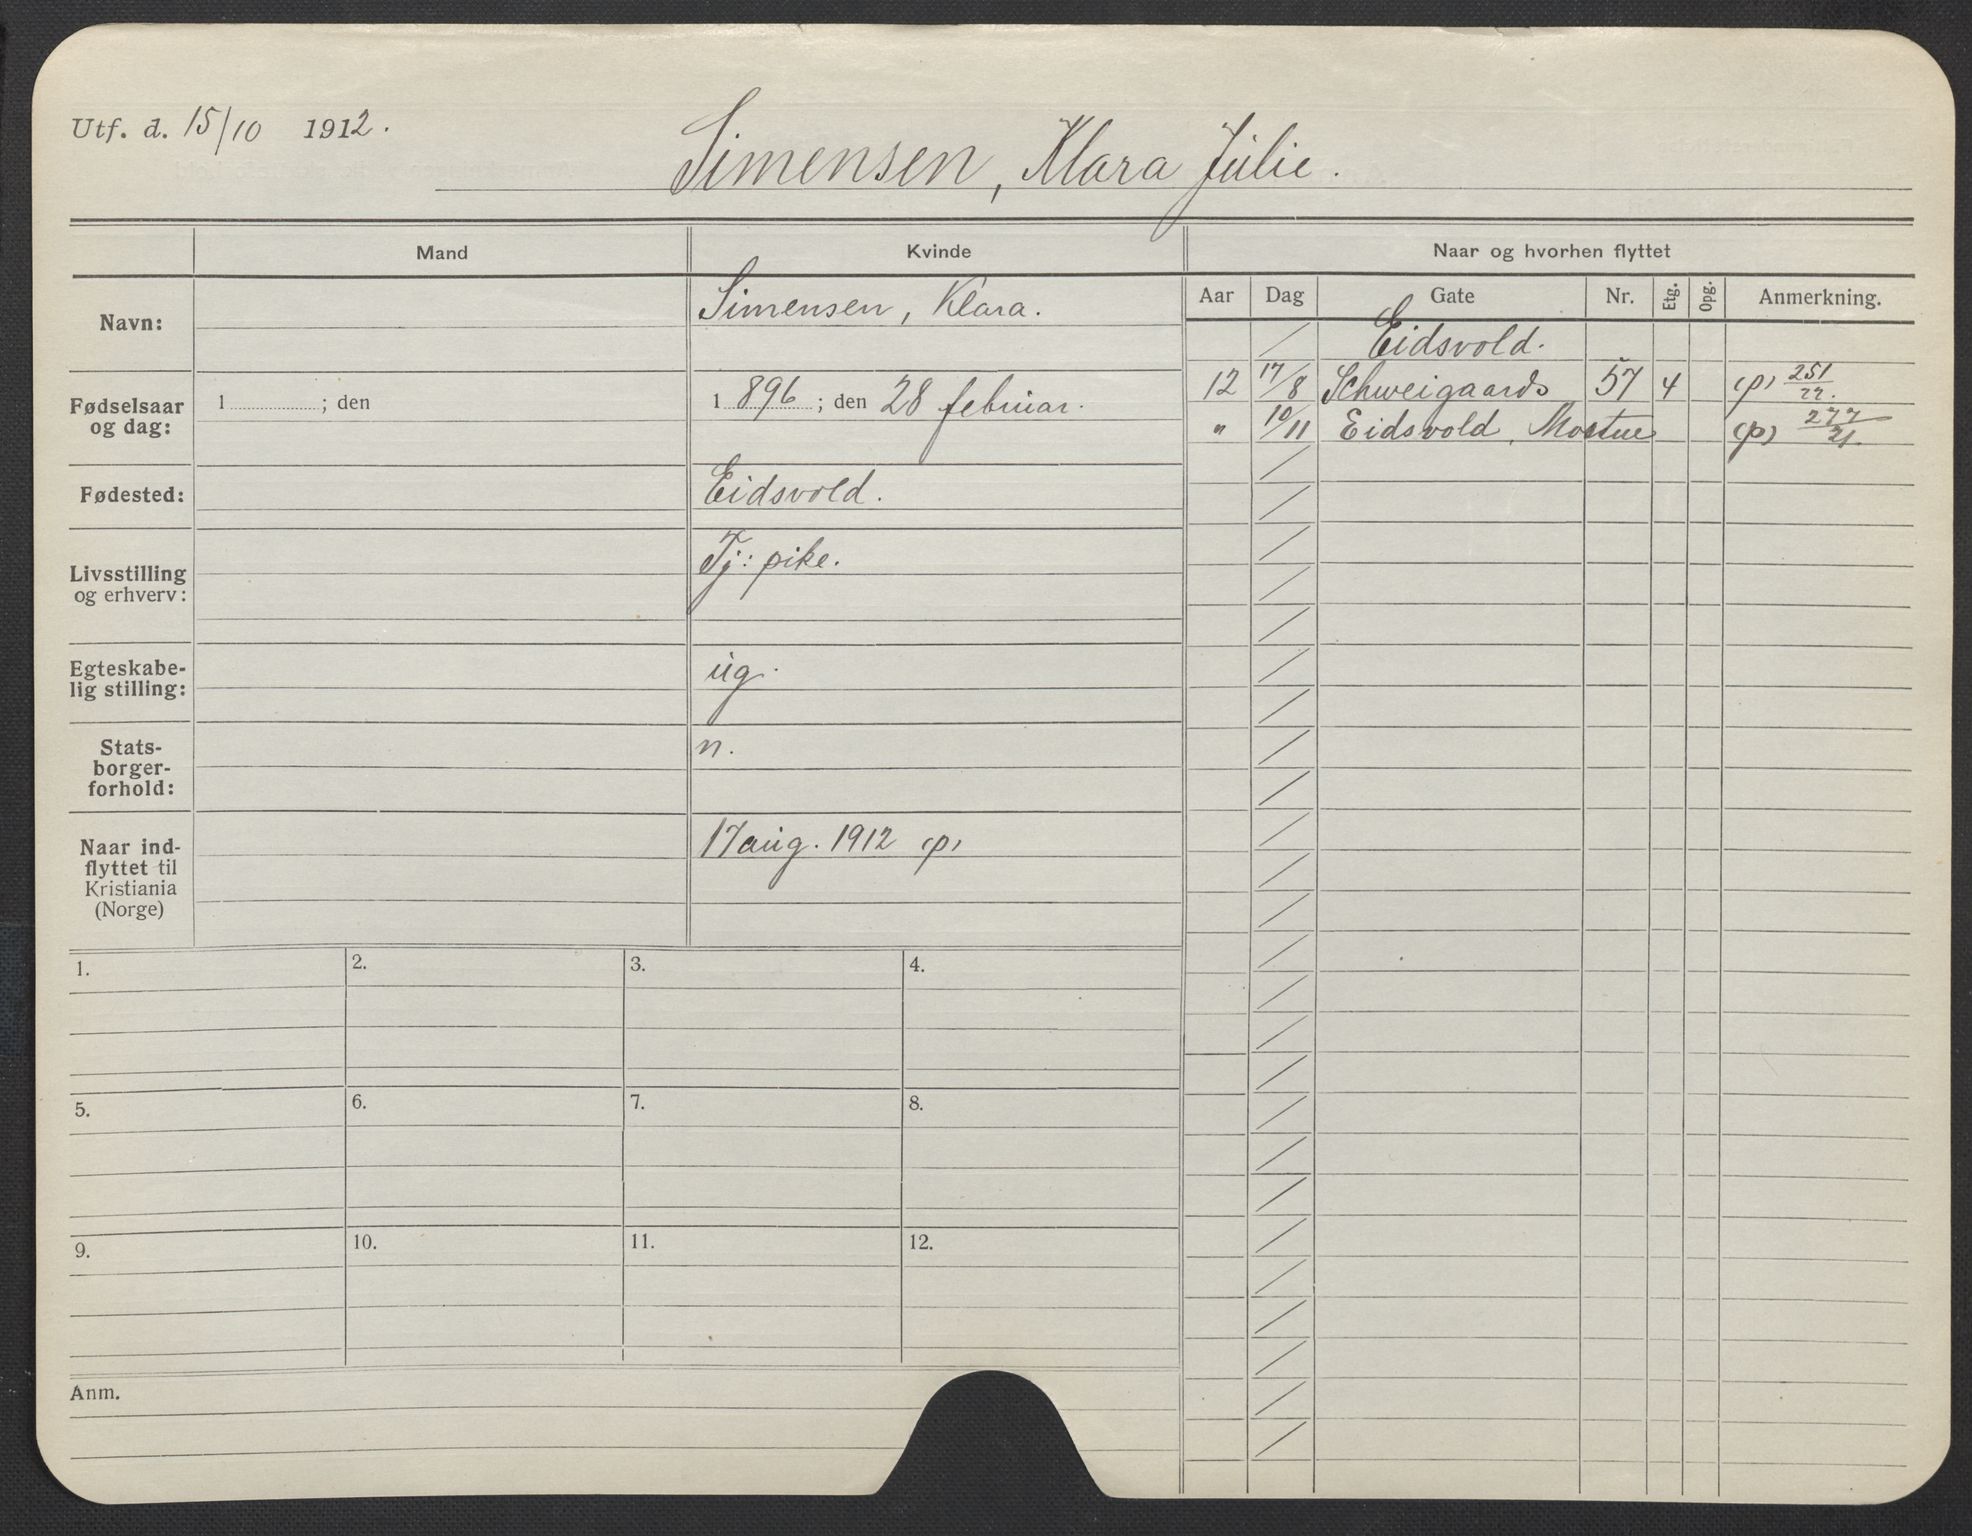 Utf. d. 15/10 1912.
Simensen, Klara Julie.
Mand Kvinde Naar og hvorhen flyttet
Aar Dag Gate Nr. Etg. Opg. Anmerkning.
Navn: Simensen, Klara.
Fødselsaar og dag: 1 ; den 1 896 ; den 28 februar.
Fødested: Eidsvold.
Livsstilling og erhverv: Tj: pike.
Egteskabe-
lig stilling: ug.
Stats-
borger-
forhold: n.
Naar ind-
flyttet til
Kristiania
(Norge) 17 aug. 1912 (p)
/ Eidsvold.
12 17/8 Schweigaards 57 4 (p) 251/22.
" 10/11 Eidsvold, Mostue (p) 277/21.
1. 2. 3. 4.
5. 6. 7. 8.
9. 10. 11. 12.
Anm.